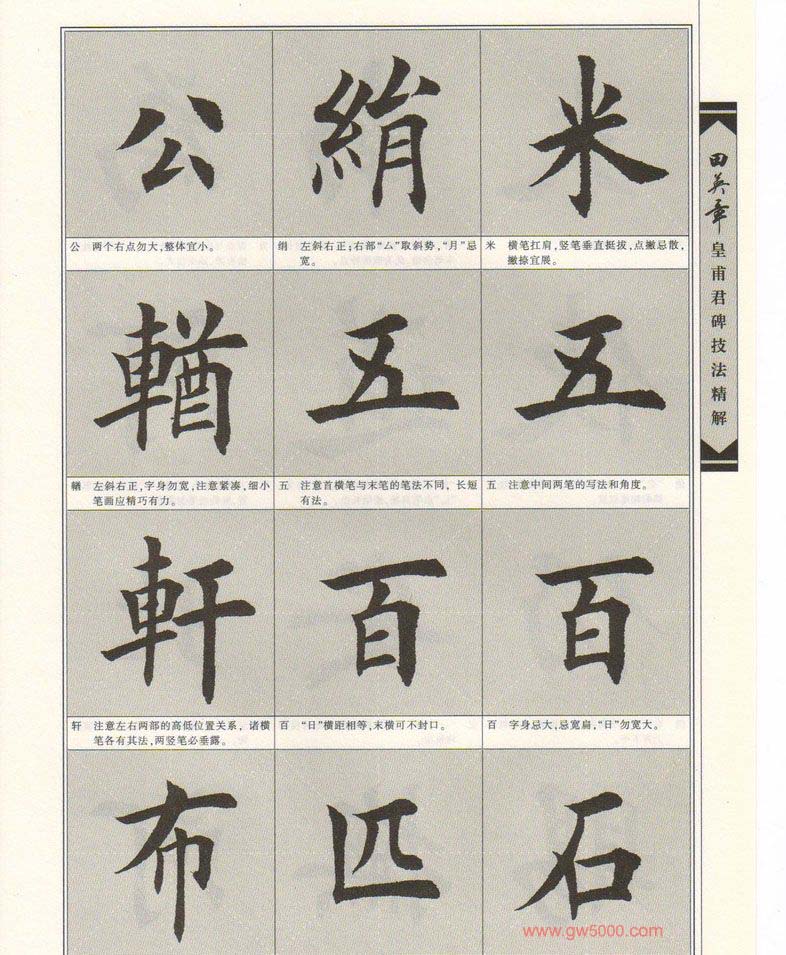 田英章皇甫君碑技法精解
米
米 横笔扛肩,竖笔垂直挺拔,点撇忌散,
撇捺宜展。
五
五 注意中间两笔的写法和角度。
百
百 字身忌大,忌宽扁,“日”勿宽大。
石
絹
绢 左斜右正;右部“厶”取斜势,“月”忌
宽。
五
五 注意首横笔与末笔的笔法不同,长短
有法。
百
百 “日”横距相等,末横可不封口。
匹
公
公 两个右点勿大,整体宜小。
輶
輶 左斜右正,字身勿宽,注意紧凑,细小
笔画应精巧有力。
軒
轩 注意左右两部的高低位置关系,诸横
笔各有其法,两竖笔必垂露。
布
www.gw5000.com